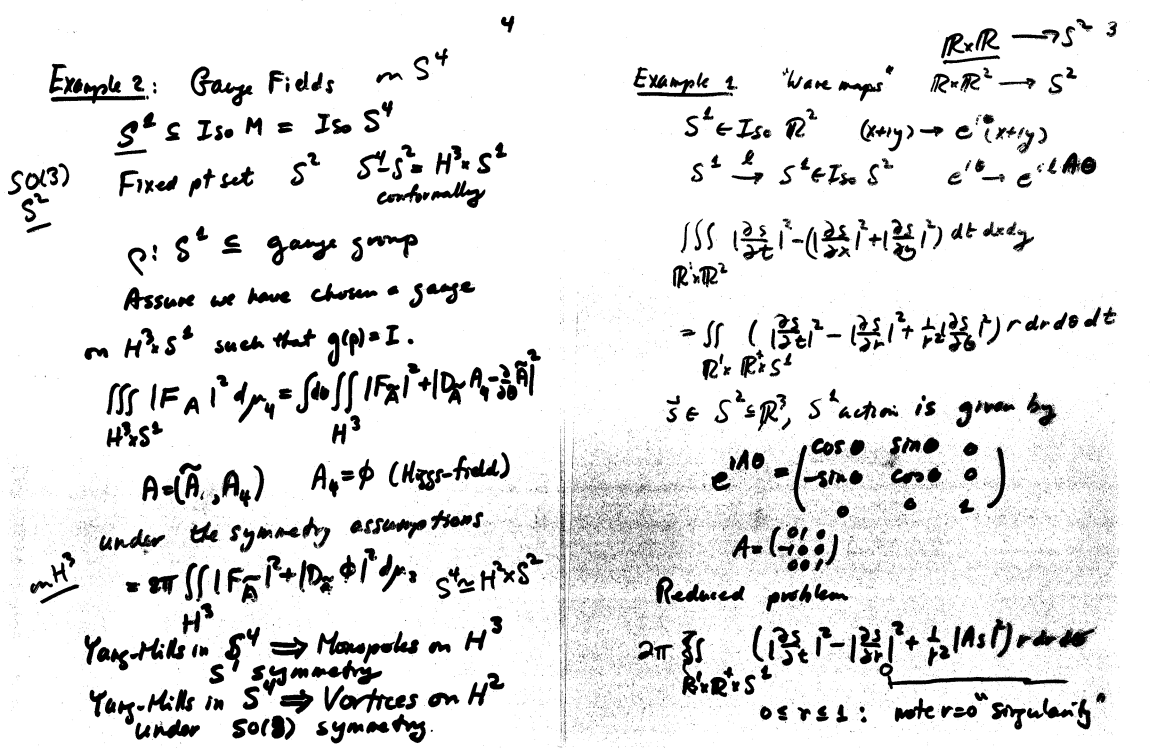 4
Example 2: Gauge Fields on S⁴
S¹ ⊆ Iso M = Iso S⁴
SO(3)
S²
Fixed pt set S² S⁴-S² = H³×S¹
conformally
ρ: S¹ ⊆ gauge group
Assure we have chosen a gauge
on H³×S¹ such that g(ρ) = I.
∫∫∫ |F_A|² dμ₄ = ∫dθ ∫∫ |F_Ã|² + |D_Ã A₄ - ∂/∂θ Ã|²
H³×S¹ H³
A = (Ã, A₄) A₄ = ϕ (Higgs-field)
under the symmetry assumptions
on H³
= 2π ∫∫ |F_Ã|² + |D_Ã ϕ|² dμ₃ S⁴ ≃ H²×S²
H³
Yang-Mills in S⁴ ⇒ Monopoles on H³
S¹ symmetry
Yang-Mills in S⁴ ⇒ Vortices on H²
under SO(3) symmetry.
3
R×R → S²
Example 1 "Wave maps" R×R² → S²
S¹ ∈ Iso R² (x+iy) → e^{iθ}(x+iy)
S¹ →^l S¹ ∈ Iso S² e^{iθ} → e^{ilAθ}
∫∫∫ |∂s/∂t|² - (|∂s/∂x|² + |∂s/∂y|²) dt dx dy
R¹×R²
= ∫∫ (|∂s/∂t|² - |∂s/∂r|² + 1/r² |∂s/∂θ|²) r dr dθ dt
R¹×R⁺×S¹
s⃗ ∈ S² ⊆ R³, S¹ action is given by
e^{iAθ} = ( cosθ sinθ 0
-sinθ cosθ 0
0 0 1 )
A = ( 0 1 0
-1 0 0
0 0 1 )
Reduced problem
2π ∫∫ (|∂s/∂t|² - |∂s/∂r|² + 1/r² |As|²) r dr
R¹×R⁺×S¹
0 ≤ r ≤ 1: note r=0 "Singularity"